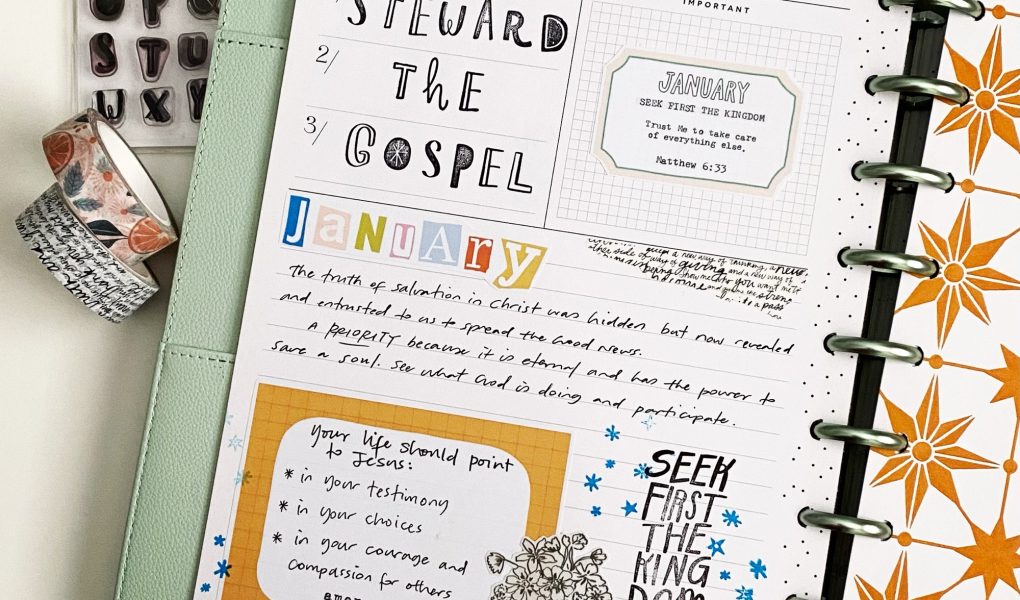 STEWARD
2/
THE
3/
GOSPEL
IMPORTANT
JANUARY
SEEK FIRST THE KINGDOM
Trust Me to take care
of everything else.
Matthew 6:33
JaNUARy
accept a new way of thinking, a new
other side of way of giving and a new way of
show me to you want me to
The truth of salvation in Christ was hidden but now revealed
and entrusted to us to spread the Good News.
A PRIORITY because it is eternal and has the power to
save a soul. See what God is doing and participate.
Your life should point
to Jesus:
* in your testimony
* in your choices
* in your courage and
compassion for others
SEEK
FIRST
THE
KING
DOM
S T U
W X Y